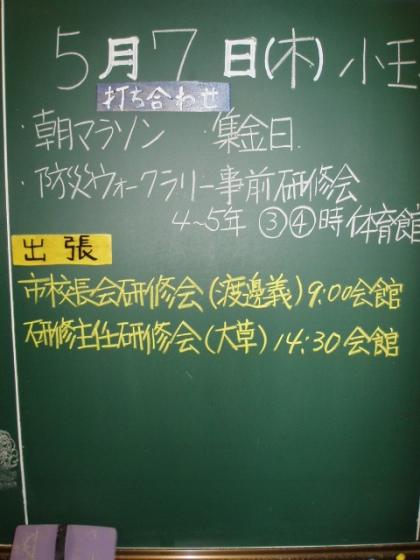 5月7日(木) 小玉
打ち合わせ
・朝マラソン ・集金日
・防災ウォークラリー事前研修会
4~5年 ③④時 体育館
出張
市校長会研修会(渡邊義)9:00会館
研修主任研修会(大草)14:30会館